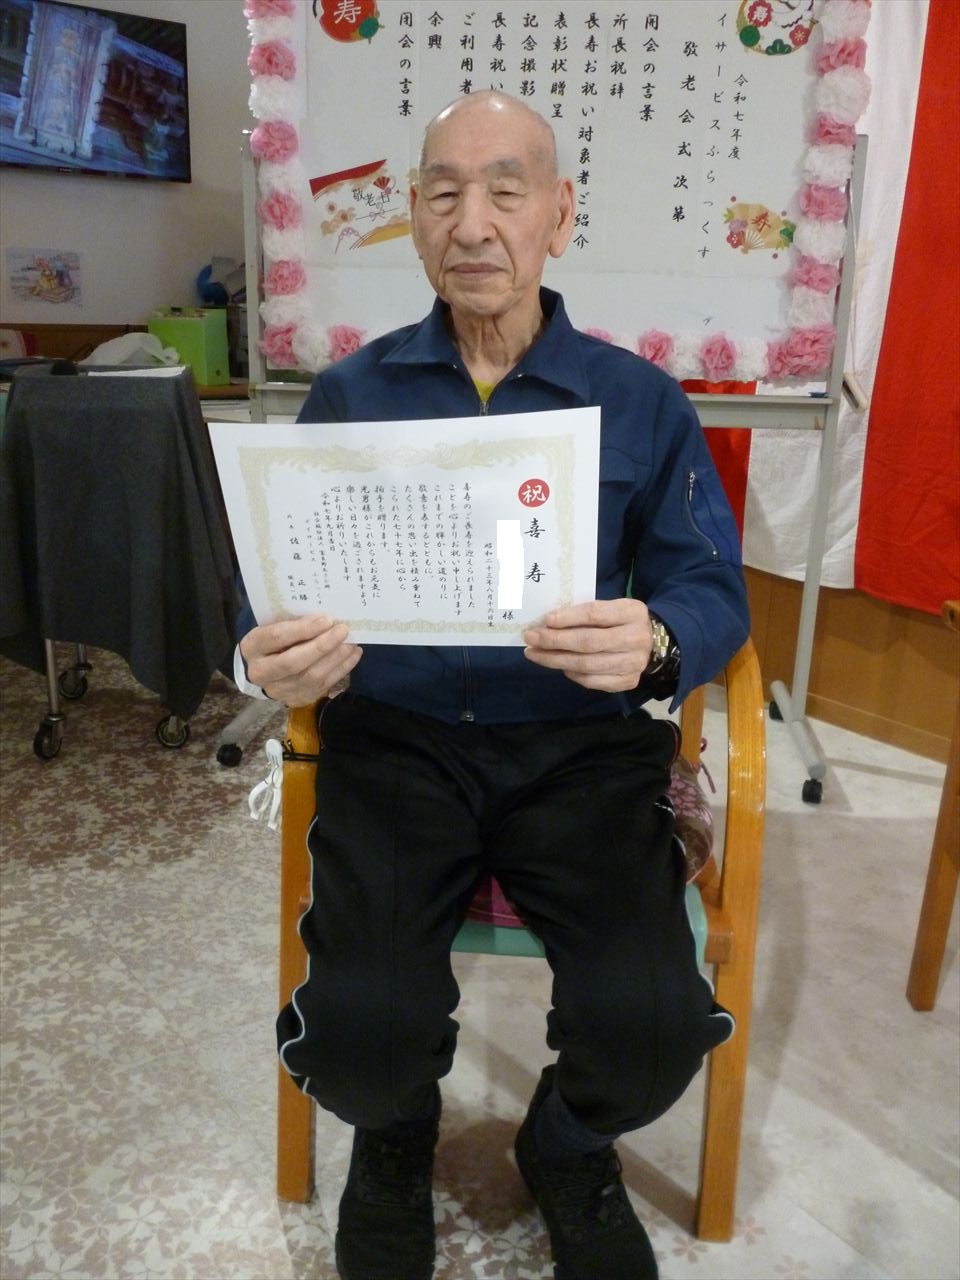 令和七年度
イサービスふらっくす
敬老会式次第
開会の言葉
所長祝辞
長寿お祝い対象者ご紹介
表彰状贈呈
記念撮影
長寿祝い
ご利用者
余興
閉会の言葉
寿
寿
寿
敬老の日
祝
喜寿
様
昭和二十三年八月十六日生
喜寿のご長寿を迎えられました
ことを心よりお祝い申し上げます
これまでの輝かしい道のりに
敬意を表するとともに、
たくさんの思い出を積み重ねて
こられた七十七年に心から
拍手を贈ります。
光男様がこれからもお元気に
楽しい日々を過ごされますよう
心よりお祈りいたします
令和七年九月吉日
社会福祉法人
デイサービス ふらっくす
所長 佐藤 正勝
職員一同